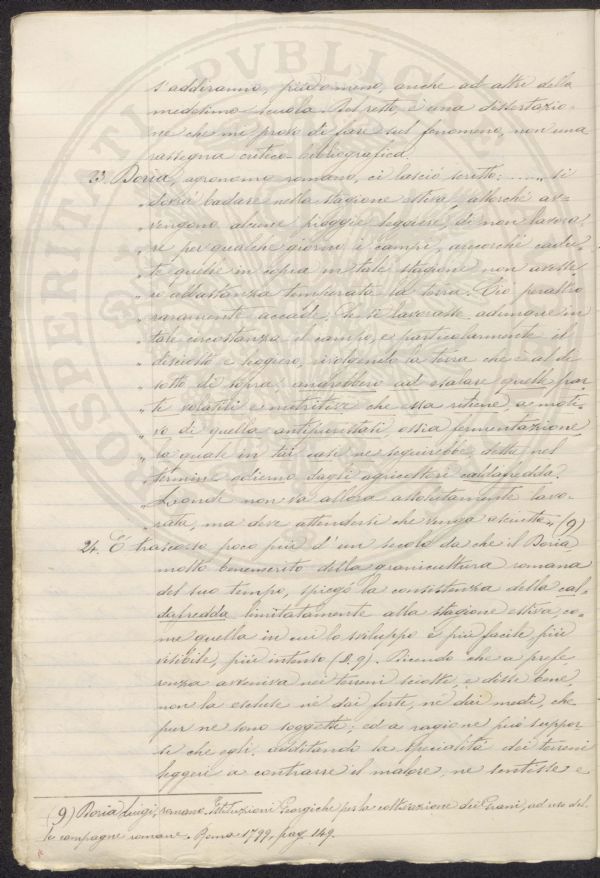 s'addiranno, più o meno, anche ad altri della
medesima scuola. Del resto, è una dissertazio-
ne che mi provo di fare sul fenomeno, non una
rassegna critico-bibliografica.
23. Doria, agronomo romano, ci lasciò scritto: .... „ si
„ dovrà badare nella stagione estiva, allorchè av-
„ vengono alcune pioggie leggiere, di non lavora-
„ re per qualche giorno i campi, ancorchè cadu-
„ te quelle in copia in tale stagione non avesse-
ro abbastanza temperata la terra. Ciò peraltro
„ raramente accade. Se si lavorasse adunque in
„ tale circostanza il campo, e particolarmente il
„ disciolto e leggiero, rivolgendo la terra che è al di
„ sotto di sopra, andrebbero ad esalare quelle par-
„ ti volatili e nutritive che essa ritiene, a moti-
„ vo di quella antiperistasi, ossia fermentazione
„ la quale in tal caso ne seguirebbe, detta nel
„ termine odierno dagli agricoltori caldafredda.
„ Laonde non va allora assolutamente lavo-
„ rata, ma deve attendersi che venga asciutta „ (9)
24. È trascorso poco più d'un secolo da che il Doria
molto benemerito della granicultura romana
del suo tempo, spiegò la consistenza della cal-
dafredda limitatamente alla stagione estiva, co-
me quella in cui lo sviluppo è più facile, più
visibile, più intenso (§. 9). Dicendo che a prefe-
renza avveniva nei terreni sciolti, e disse bene
non la escluse nè dai forti, nè dai medi, che
pur ne sono soggetti; ed a ragione può suppor-
si che egli, additando la specialità dei terreni
leggeri a contrarre il malore, ne sentisse e
(9) Doria Luigi, romano. Istituzioni Georgiche per la coltivazione dei Grani, ad uso del-
le campagne romane. Roma 1799, pag. 149.
PROSPERITATI PVBLICAE